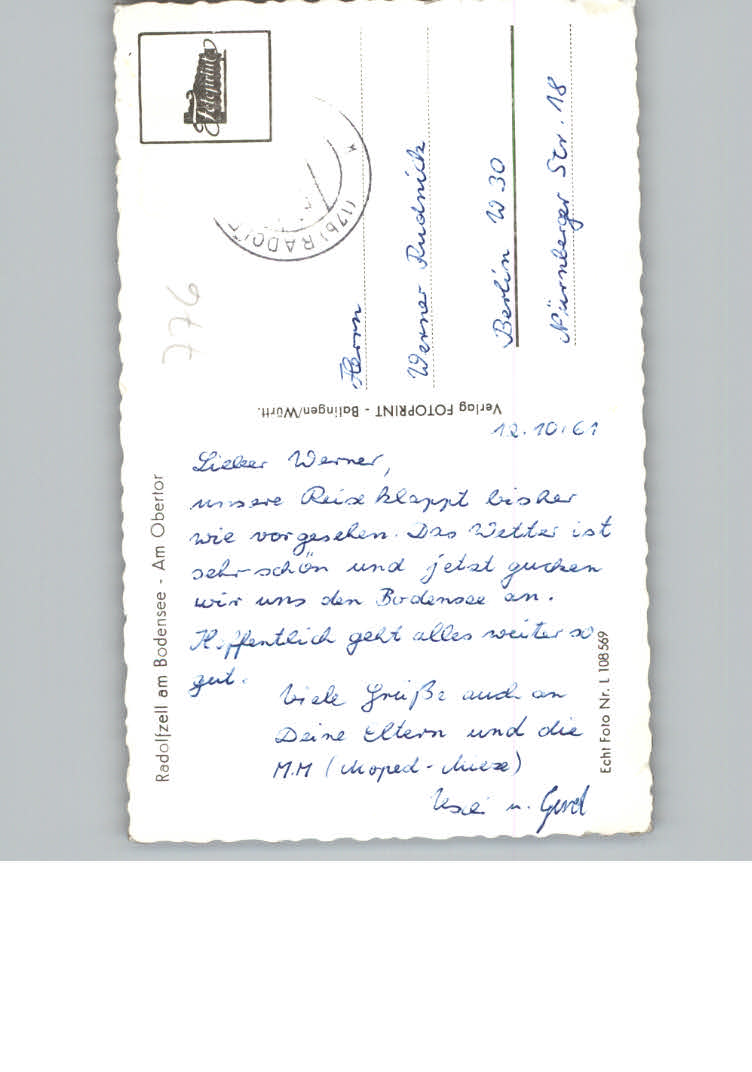 Radolfzell am Bodensee - Am Obertor
12.10.61
Lieber Werner,
unsere Reise klappt bisher
wie vorgesehen. Das Wetter ist
sehr schön und jetzt gucken
wir uns den Bodensee an.
Hoffentlich geht alles weiter so
gut.
Viele Grüße auch an
Deine Eltern und die
M.M (Moped-Mieze)
u. Gerd
Herrn
Werner Rudnick
Berlin W 30
Nürnberger Str. 18
Verlag FOTOPRINT - Balingen/Württ.
Echt Foto Nr. L 108569
Fotoprint
(17b) RADOLF
776